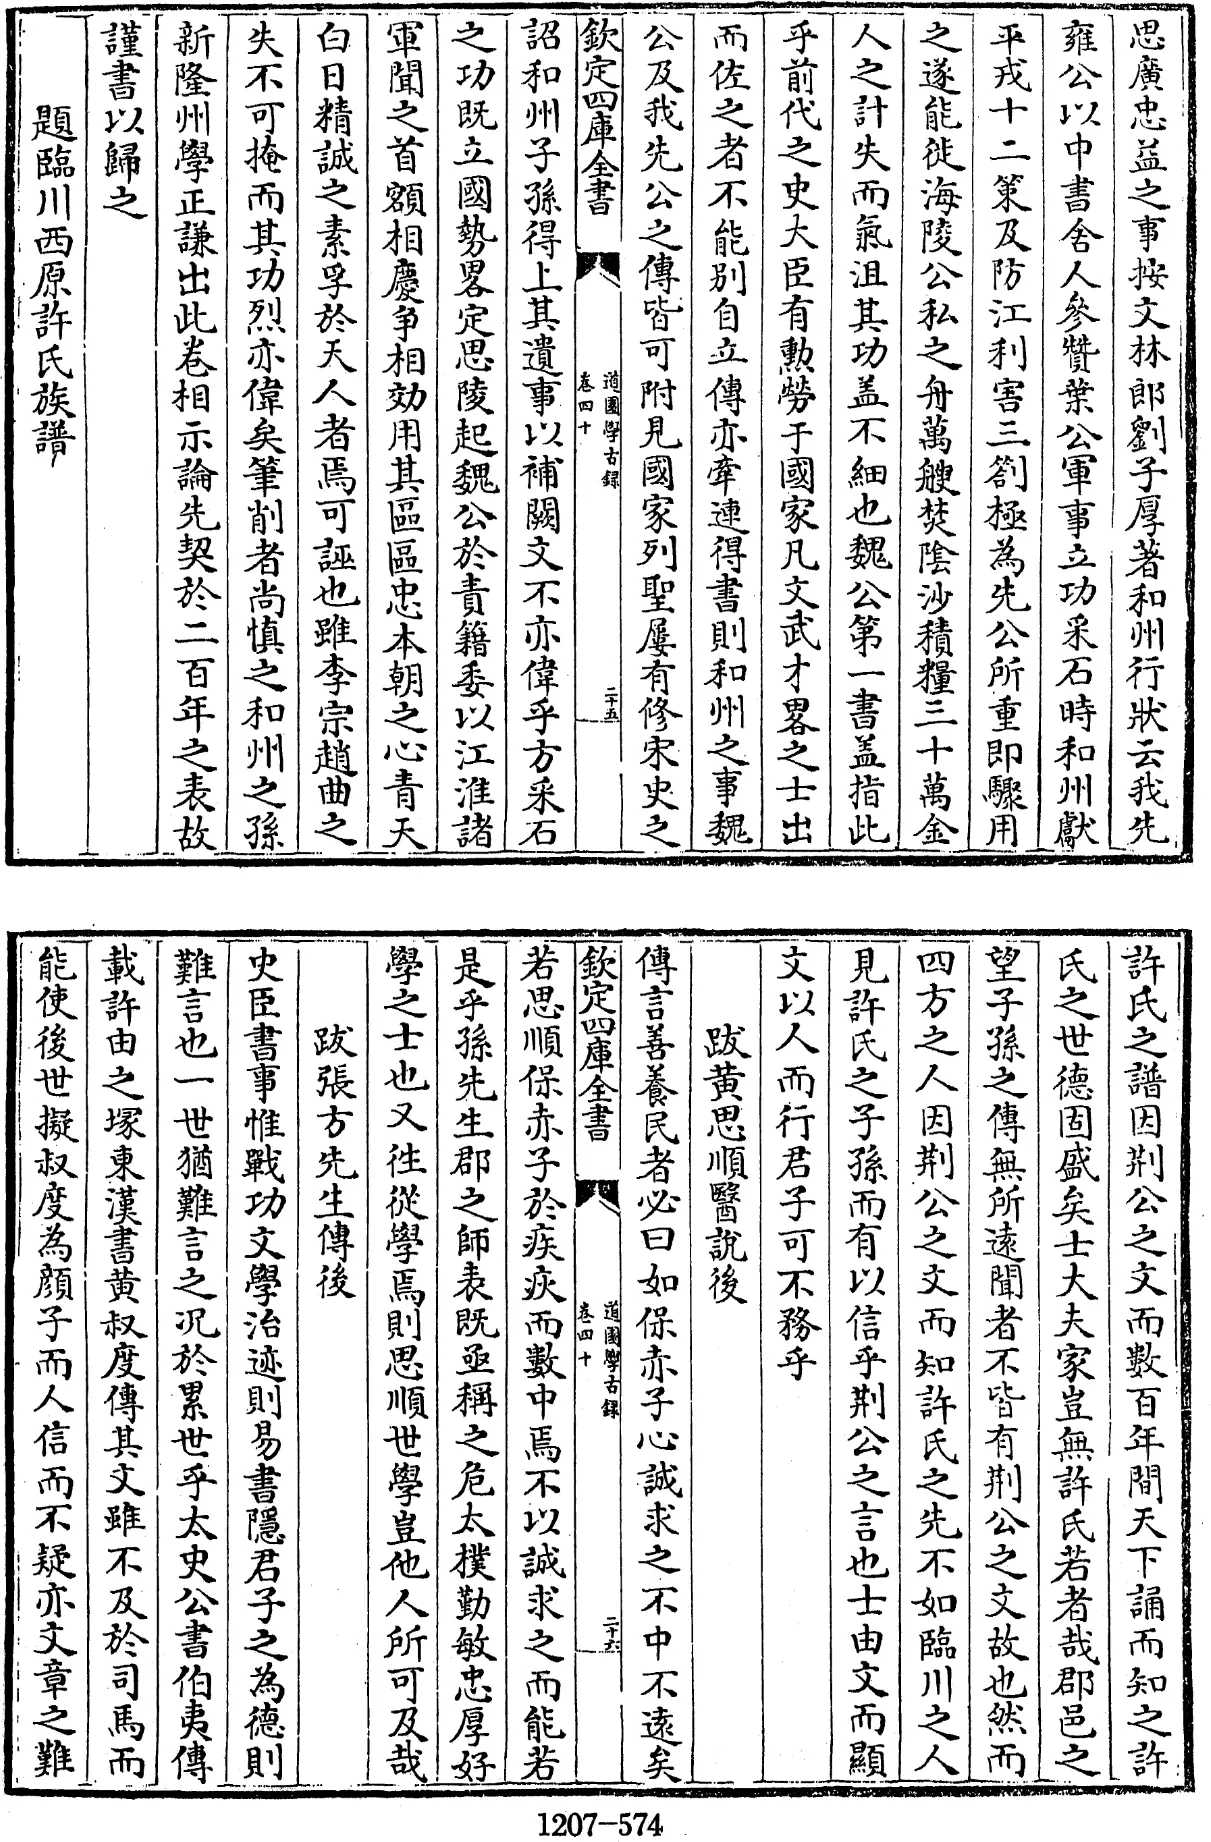 思廣忠益之事按文林郎劉子厚著和州行狀云我先
雍公以中書舍人參贊葉公軍事立功采石時和州獻
平戎十二策及防江利害三劄極為先公所重即驟用
之遂能徙海陵公私之舟萬艘焚陰沙積糧三十萬金
人之計失而氣沮其功盖不細也魏公第一書盖指此
乎前代之史大臣有勲勞于國家凡文武才畧之士出
而佐之者不能别自立傳亦牽連得書則和州之事魏
公及我先公之傳皆可附見國家列聖屢有修宋史之
欽定四庫全書
道園學古録
卷四十
二十五
詔和州子孫得上其遺事以補闕文不亦偉乎方采石
之功既立國勢畧定思陵起魏公於責籍委以江淮諸
軍聞之首額相慶争相効用其區區忠本朝之心青天
白日精誠之素孚於天人者焉可誣也雖李宗趙曲之
失不可掩而其功烈亦偉矣筆削者尚慎之和州之孫
新隆州學正謙出此卷相示論先契於二百年之表故
謹書以歸之
題臨川西原許氏族譜
許氏之譜因荆公之文而數百年間天下誦而知之許
氏之世德固盛矣士大夫家豈無許氏若者哉郡邑之
望子孫之傳無所遠聞者不皆有荆公之文故也然而
四方之人因荆公之文而知許氏之先不如臨川之人
見許氏之子孫而有以信乎荆公之言也士由文而顯
文以人而行君子可不務乎
跋黄思順醫說後
傳言善養民者必曰如保赤子心誠求之不中不遠矣
欽定四庫全書
道園學古録
卷四十
二十六
若思順保赤子於疾疢而數中焉不以誠求之而能若
是乎孫先生郡之師表既亟稱之危太樸勤敏忠厚好
學之士也又徃從學焉則思順世學豈他人所可及哉
跋張方先生傳後
史臣書事惟戰功文學治迹則易書隱君子之為德則
難言也一世猶難言之况於累世乎太史公書伯夷傳
載許由之塚東漢書黄叔度傳其文雖不及於司馬而
能使後世擬叔度為顔子而人信而不疑亦文章之難
1207-574